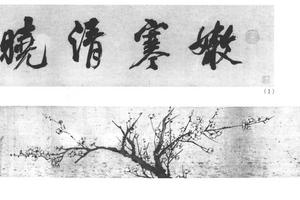 嫩寒清曉
(1)